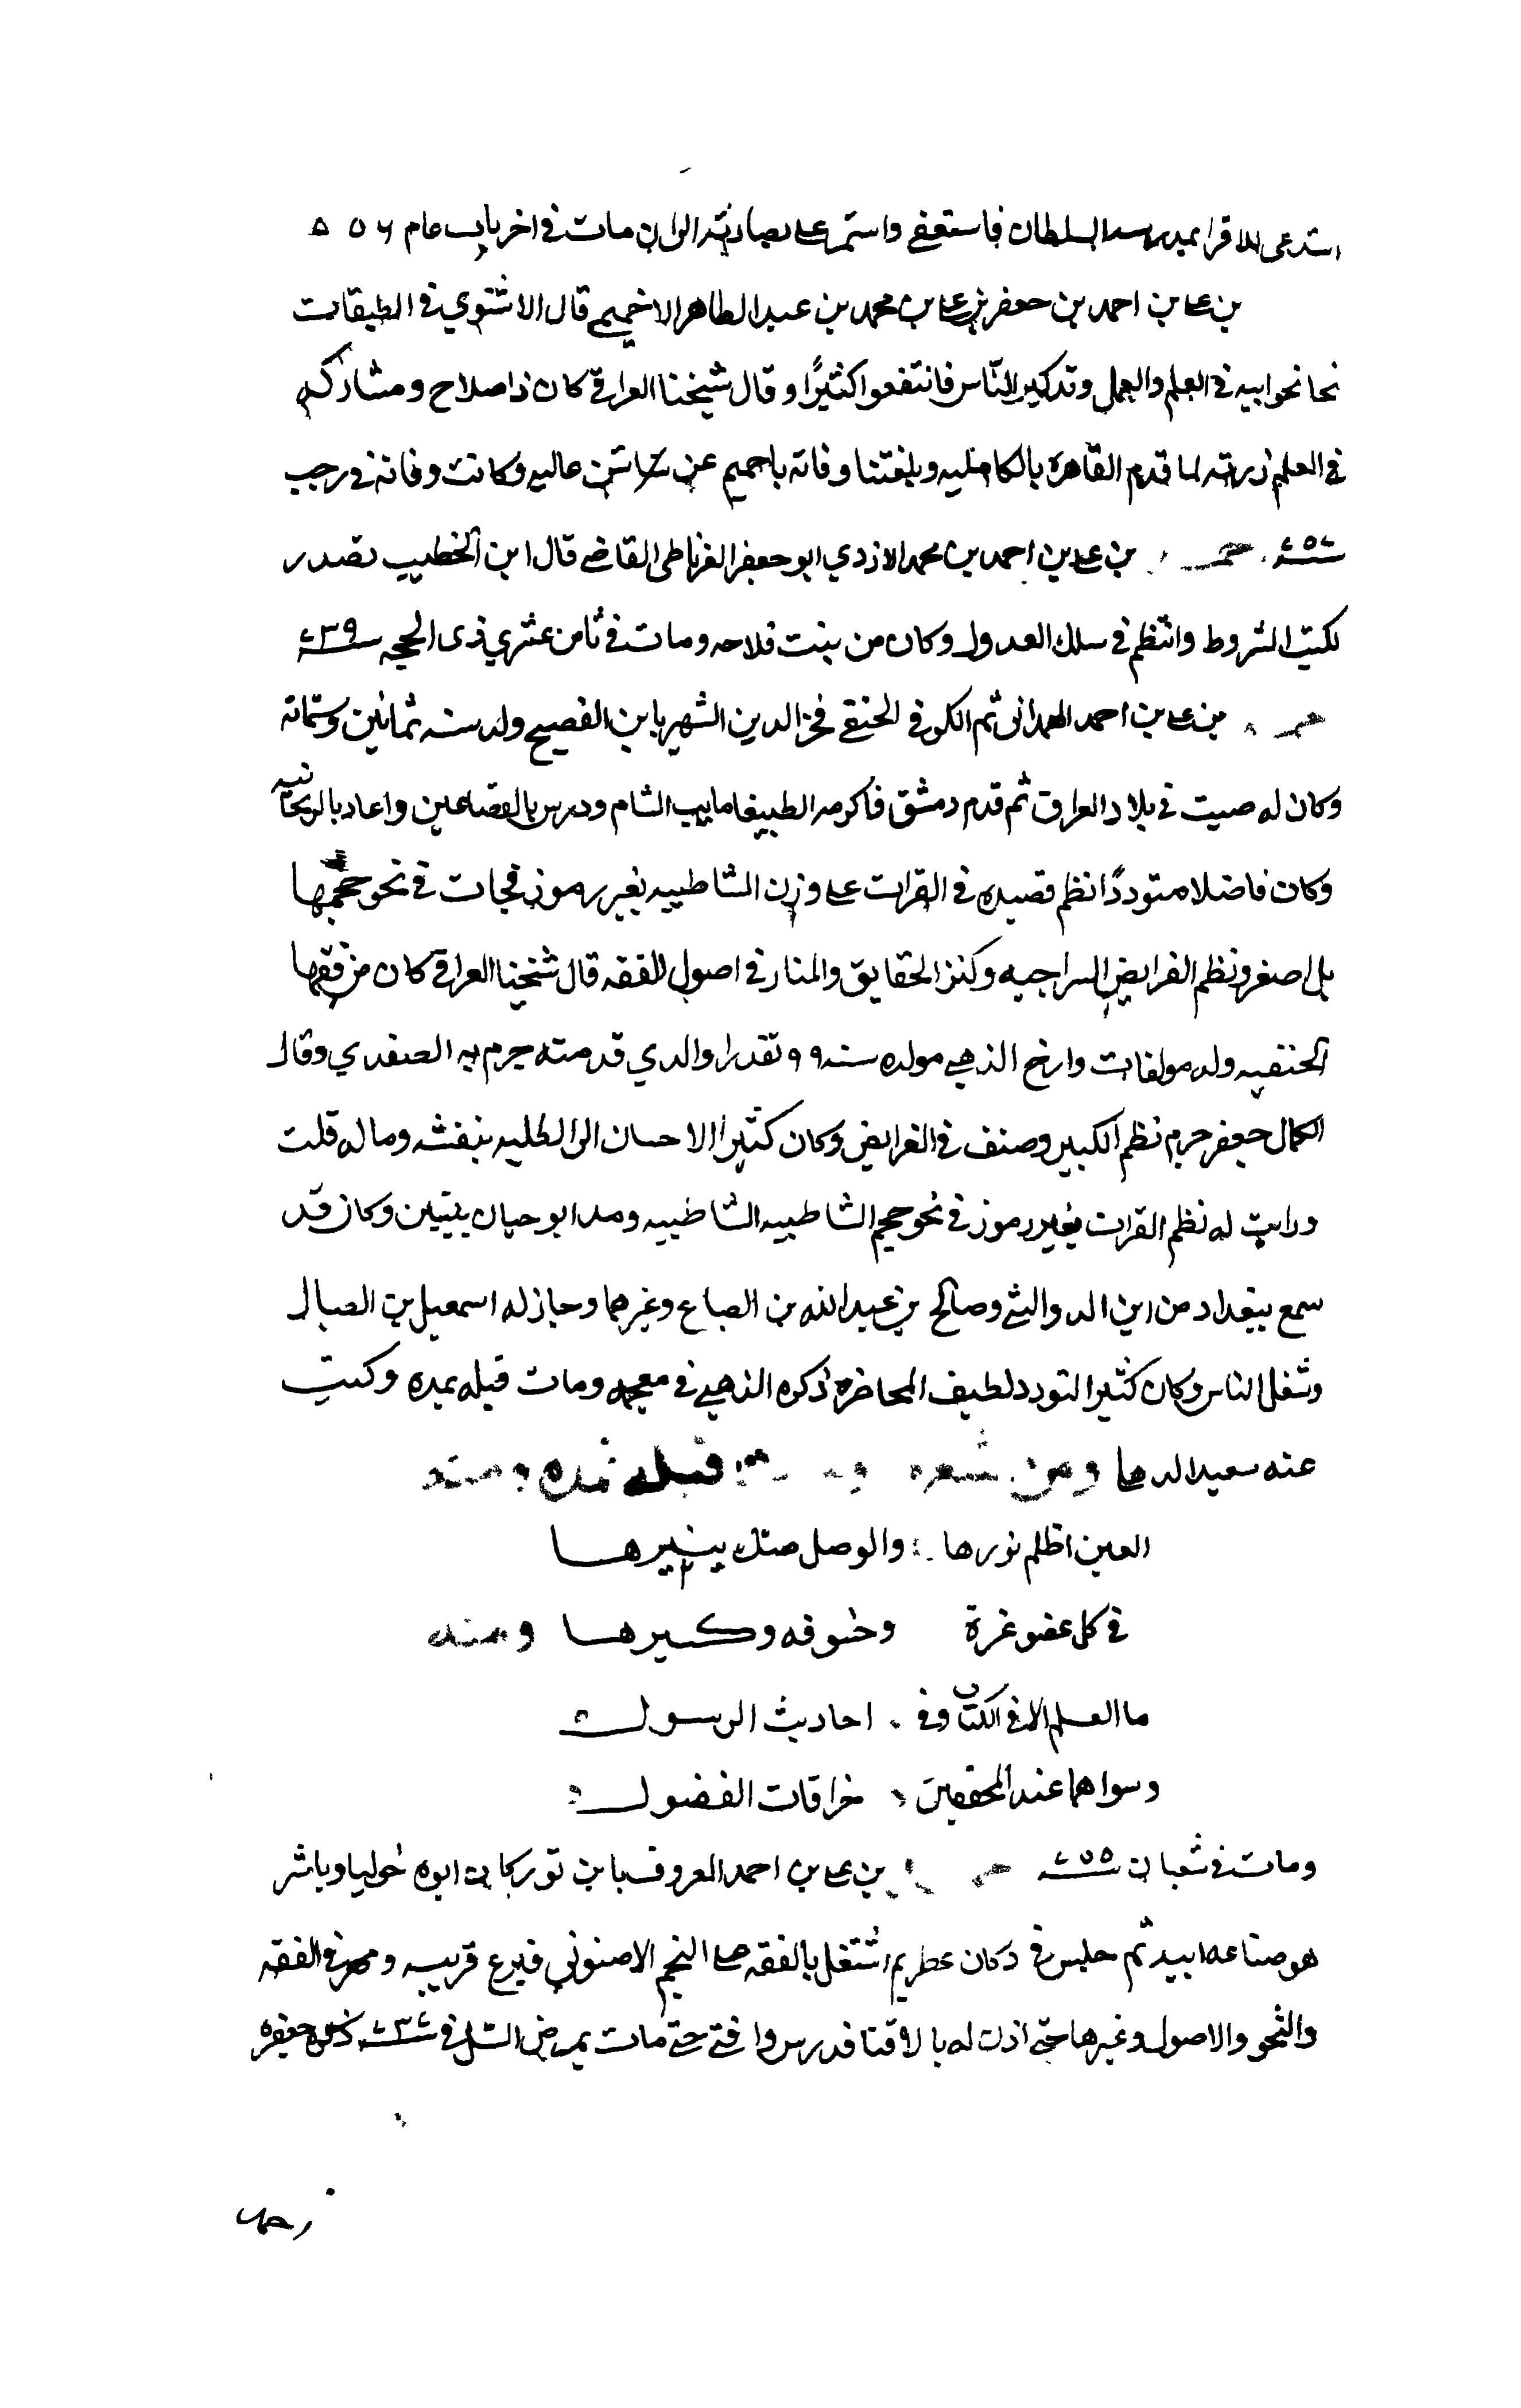 استدعى للاقرا بمدرسه السلطان فاستعفى واستمر على صيانته الى ان مات في اخر عام ٧٥٦
بن علي بن احمد بن جعفر بن علي بن محمد بن عبد الظاهر الاخميمي قال الاسنوي في الطبقات
نحا نحو ابيه في العلم والعمل وتذكير الناس فانتفعوا كثيرًا وقال شيخنا العراقي كان ذا صلاح ومشاركه
في العلم زرته لما قدم القاهره بالكامليه وبلغتنا وفاته باخميم عن عاليه وكانت وفاته في رجب
بن علي بن احمد بن محمد الازدي ابو جعفر الغرناطي القاضي قال ابن الخطيب تصدر
لكتب الشروط وانتظم في سلك العدول وكان من بيت فلاحه ومات في ثامن عشري ذي الحجه سنة ٧٣٩
بن علي بن احمد الهمداني ثم الكوفي الحنفي فخر الدين الشهير بابن الفصيح ولد سنه ثمانين وستمائه
وكان له صيت في بلاد العراق ثم قدم دمشق فاكرمه الطنبغا نايب الشام ودرس بالقصاعين واعاد بالريحانيه
وكان فاضلا متوددًا نظم قصيده في القراات على وزن الشاطبيه بغير رموز فجات في نحو حجمها
بل اصغر ونظم الفرايض السراجيه وكنز الحقايق والمنار في اصول الفقه قال شيخنا العراقي كان من فقها
الحنفيه وله مولفات وارخ الذهبي مولده سنه ٩٩ تقديرا والذي قدمته جزم به الصفدي وقال
الكمال جعفر نظم الكبير وصنف في الفرايض وكان كثير الاحسان الى الطلبه بنفسه وماله قلت
ورايت له نظم القراات بغير رموز في نحو حجم الشاطبيه الشاطبيه ومدح ابو حيان ببيتين وكان قد
سمع ببغداد من ابن الدواليبي وصالح بن عبد الله بن الصباغ وغيرهما وجاز له اسمعيل بن الطبال
وشغل الناس وكان كثير التودد لطيف المحاضره ذكره الذهبي في معجمه ومات قبله بمده وكتب
عنه سعيد الدهلي ومن شعره قبله بمده ومنه
العين اظلم نورها والوصل منك ينيرها
في كل عضو غرة وكسيرها ومنه
ما العلم الا في الكتاب وفي احاديث الرسول
وسواهما عند المحققين خرافات الفضول
ومات في شعبان سنة ٧٥٥ بن علي بن احمد المعروف بابن ابوه خوليا وباشر
هو صناعه ابيه ثم جلس في دكان عطر ثم اشتغل بالفقه على النجم الاصفوني فبرع قريبه ومهر في الفقه
والنحو والاصول وغيرها حتى اذن له بالافتا فدرس وافتى حتى مات بمرض السل في سنة ٧٣٧ ذكره جعفر